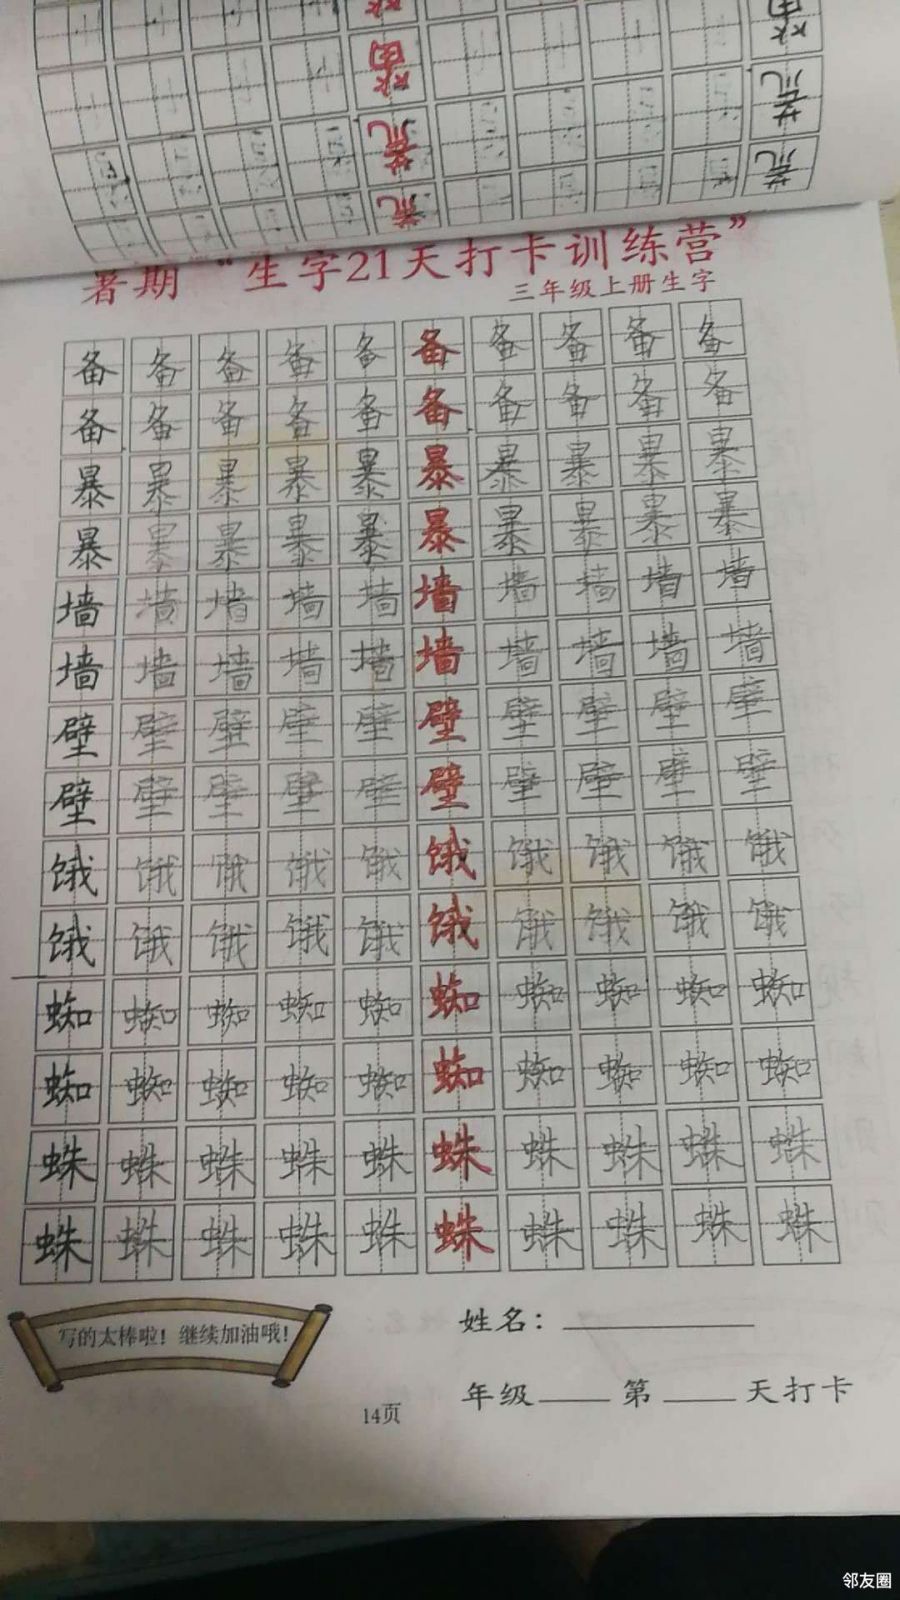 暑期“生字21天打卡训练营”
三年级上册生字
备备备备备备备备备备
备备备备备备备备备备
暴暴暴暴暴暴暴暴暴暴
暴暴暴暴暴暴暴暴暴暴
墙墙墙墙墙墙墙墙墙墙
墙墙墙墙墙墙墙墙墙墙
壁壁壁壁壁壁壁壁壁壁
壁壁壁壁壁壁壁壁壁壁
饿饿饿饿饿饿饿饿饿饿
饿饿饿饿饿饿饿饿饿饿
蜘蜘蜘蜘蜘蜘蜘蜘蜘蜘
蜘蜘蜘蜘蜘蜘蜘蜘蜘蜘
蛛蛛蛛蛛蛛蛛蛛蛛蛛蛛
蛛蛛蛛蛛蛛蛛蛛蛛蛛蛛
写的太棒啦！继续加油哦！
姓名：
年级 第 天打卡
14页
邻友圈